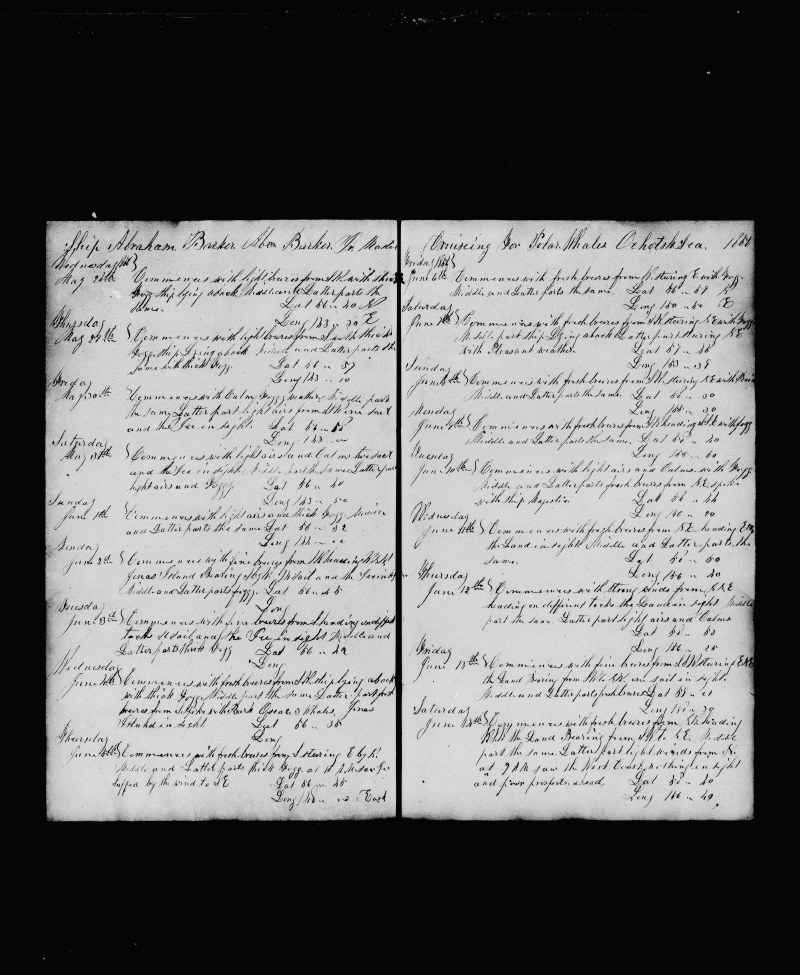 Ship Abraham Barker Abm Barker Jn Master
Wednesday
May 28th Commences with light breezes from SW with thick
Fogg ship lying aback Middle and Latter parts the
same. Lat 56 " 40 N
Long 143 " 30 E
Thursday
May 29th Commences with light breezes from South thick
Fogg ship Lying aback Middle and Latter parts the
same with thick Fogg. Lat 56 " 57
Long 143 " 10
Friday
May 30th Commences with Calm Foggy weather Middle part
the same Latter part light airs from SW one sail
and the Ice in sight. Lat 56
Long 143
Saturday
May 31st Commences with light airs and Calms two sail
and the Ice in sight Middle part the same Latter part
light airs and Foggy. Lat 56 " 40
Long 143 " 50
Sunday
June 1st Commences with light airs and thick Fogg. Middle
and Latter parts the same Lat 56 " 32
Long
Monday
June 2nd Commences with fine breezes from SW heading
Jonas Island Bearing 14 sail and the Ice in sight
Middle and Latter parts foggy. Lat 56 " 45
Long
Tuesday
June 3rd Commences with fine breezes from S heading on different
tacks 11 sail and the Ice in sight Middle and
Latter parts thick Fogg Lat 56 " 42
Long
Wednesday
June 4th Commences with fresh breezes from SW ship lying aback
with thick Fogg. Middle part the same Latter part fresh
breezes from S spoke with Bark Oscar 2 Whales, Jonas
Island in sight Lat 56 " 35
Long
Thursday
June 5th Commences with fresh breezes from S stering E by N.
Middle and Latter parts thick Fogg. at 10 AM saw Ice
luffed by the wind to SE Lat 56 " 45
Long East
Cruiseing For Polar Whales Ochotsk Sea. 1856
Friday
June 6th Commences with fresh breezes from SW stering E with Fogg.
Middle and Latter parts the same. Lat 56 " 59 N
Long 150 " 50 E
Saturday
June 7th Commences with fresh breezes from SW stering NE with Fogg
Middle part ship Lying aback Latter part stering NE
with Pleasant weather. Lat 57 " 45
Long 153 " 38
Sunday
June 8th Commences with fresh breezes from SW stering NE with Rain
Middle and Latter parts the same. Lat 58 " 30
Long 155 " 30
Monday
June 9th Commences with fresh breezes from SW heading SE with fogg
Middle and Latter parts the same. Lat 58 " 20
Long
Tuesday
June 10th Commences with light airs and Calms with Fogg.
Middle and Latter parts fresh breezes from NE spoke
with ship Majestic Lat 58 " 44
Long
Wednesday
June 11th Commences with fresh breezes from NE heading
the Land in sight Middle and Latter parts the
same. Lat 58 " 50
Long 156 " 20
Thursday
June 12th Commences with strong winds from NNE
heading on different tacks the Land in sight Middle
part the same Latter part light airs and Calms
Lat 58 " 52
Long 156 " 25
Friday
June 13th Commences with fine breezes from SW stering ENE
the Land Bearing from one sail in sight.
Middle and Latter parts fresh breezes Lat 58
Long
Saturday
June 14th Commences with fresh breezes from SW heading
the Land Bearing from NW to NE. Middle
part the same Latter part light winds from
at 9 AM saw the West Coast nothing in sight
and poor prospects ahead, Lat 58 " 40
Long 156 " 40